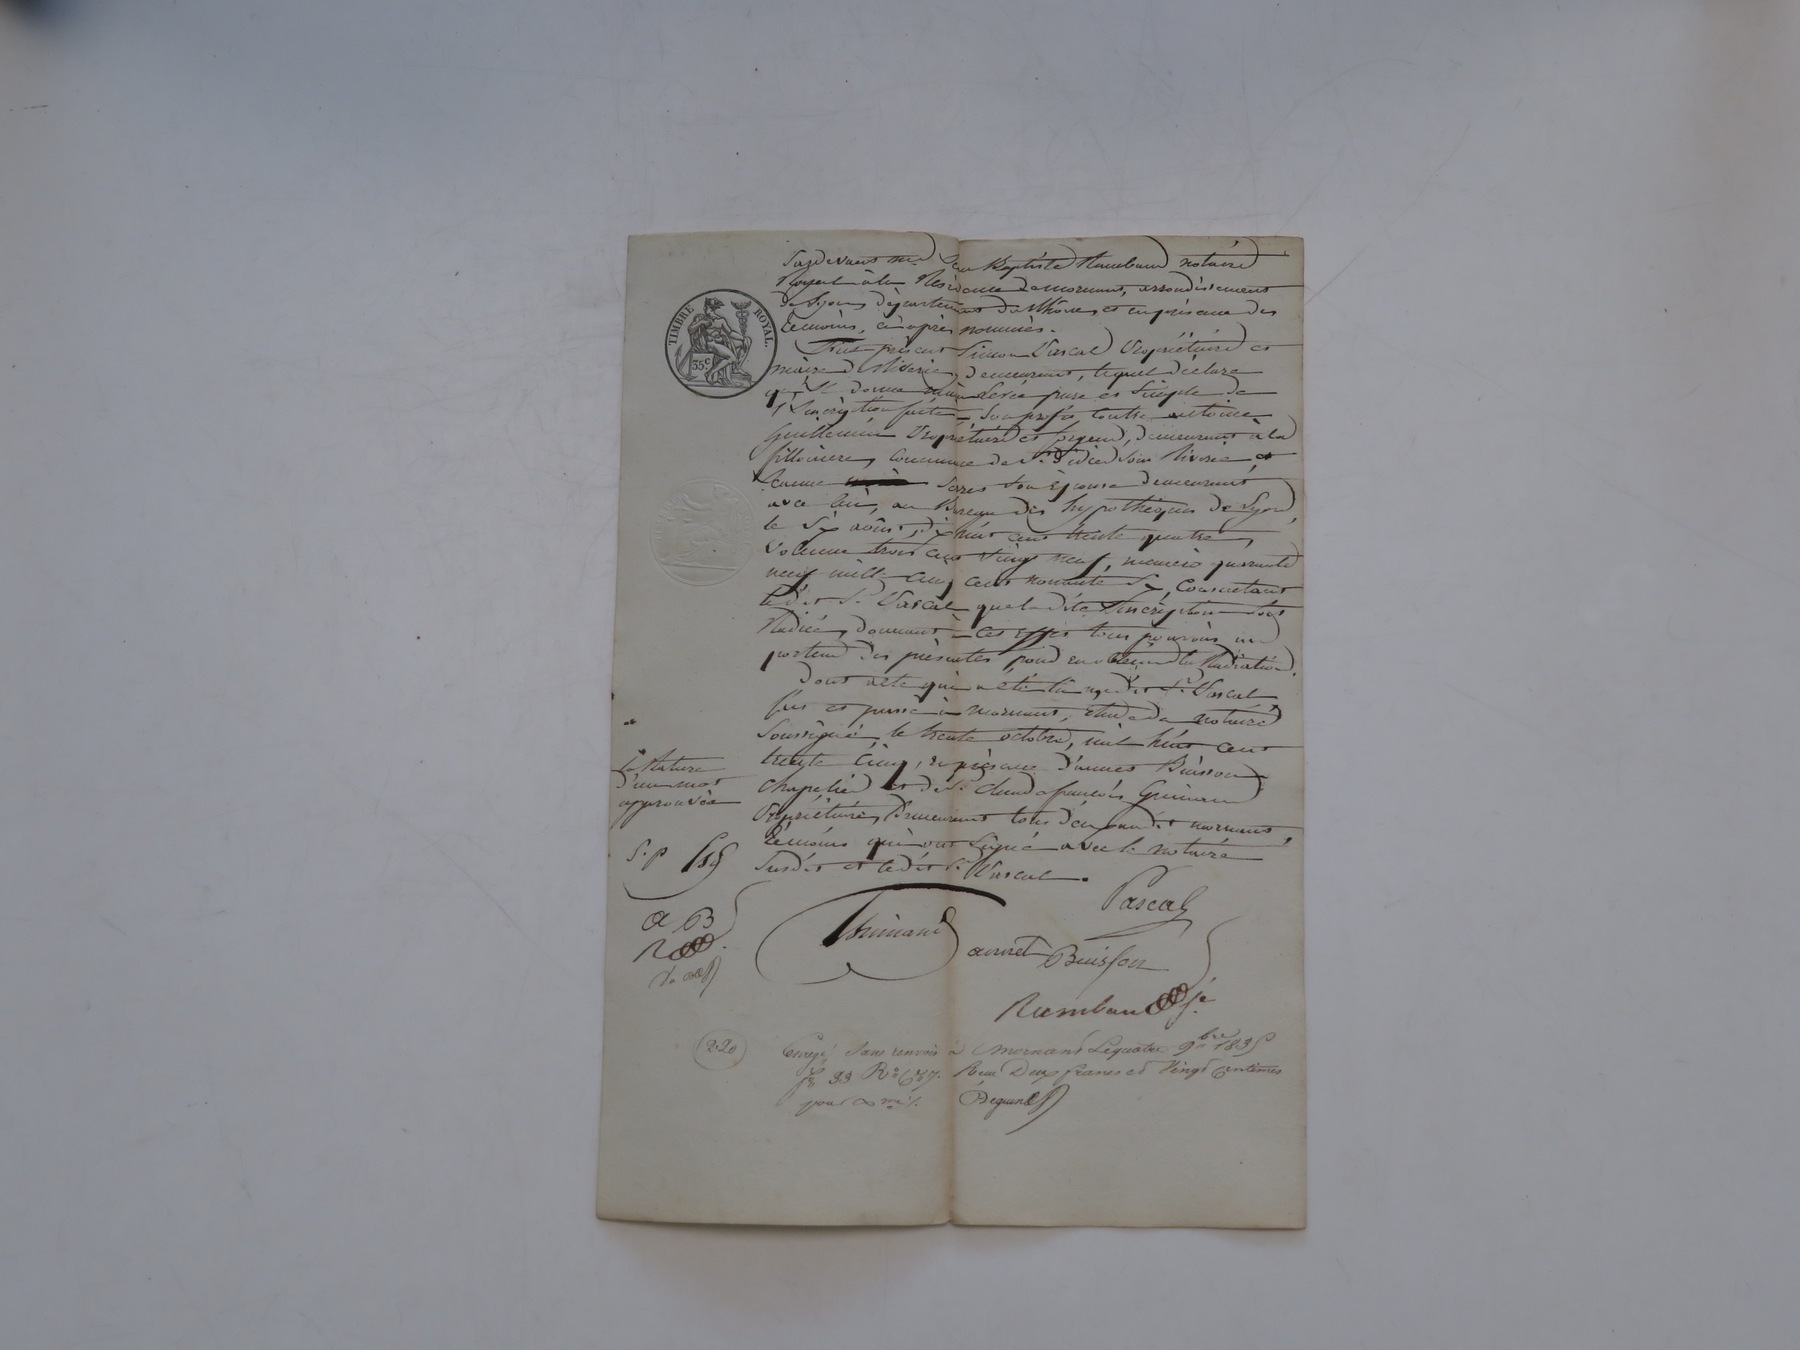 TIMBRE ROYAL.
35c
Pardevant Me Jean Baptiste Rambaud notaire
Royal à la Résidence de mornant, arrondissement
de Lyon, département du Rhône, et en présence des
témoins, ci après nommés.
Fut présent Simon Pascal Propriétaire et
maire de Riverie, y demeurant, lequel déclare
qu'il donne main Levée pure et Simple de
l'Inscription faite à Son profit contre antoine
Guillermin Propriétaire et demeurant à la
commune de St Didier Sous Riverie, et
Jeanne Son épouse demeurant
avec lui, au Bureau des hypothèques de Lyon,
le Six août, dix huit cent trente quatre,
Volume trois cent Vingt neuf, numéro quarante
neuf mille cinq cent nonante Six, Consentant
le dit Sr Pascal que la dite Inscription Soit
Radiée, donnant à cet effet tous pouvoirs au
porteur des présentes pour en obtenir la Radiation.
Dont acte qui a été lu au dit Sr Pascal
fait et passé à mornant, étude du notaire
Soussigné, le trente octobre, mil huit cent
trente Cinq, en présence d'annet Buisson
chapelier et de Sr Claude françois Guinand
Propriétaire, Demeurant tous deux au dit mornant,
témoins qui ont Signé avec le notaire
Susdit et le dit Sr Pascal.
la Rature
d'un mot
approuvée
S. p
a B
Pascal
Guinand
annet Buisson
Rambaud
2.20
Enregé Sans renvois à Mornant Le quatre 9bre 1835
fo 33 Ro Reçu Deux francs et Vingt Centimes
pour